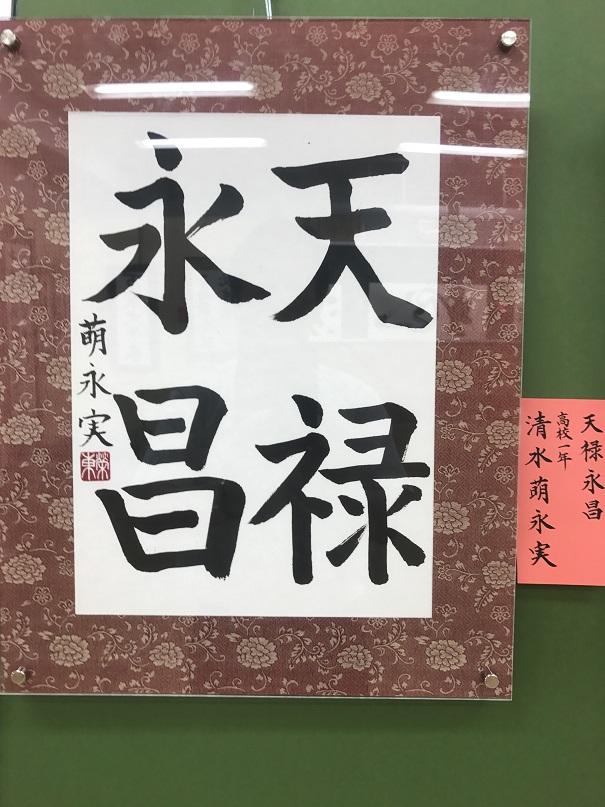 天禄
永昌
萌永実
天禄永昌
高校一年
清水萌永実